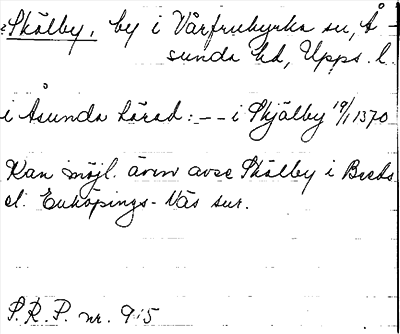 ?Skälby, by i Vårfrukyrka sn, Å-
sunda hd, Upps. l.
i Åsunda härad: - - i Skjälby 19/1 1370
Kan möjl. även avse Skälby i Breds
el. Enköpings-Näs snr.
S.R.P. nr. 915